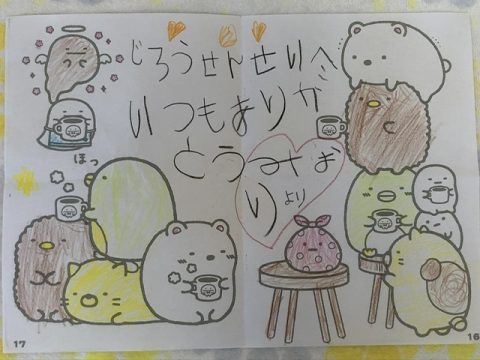 じろうせんせいへ
いつもありが
とう みお
り より
ほっ
17
16